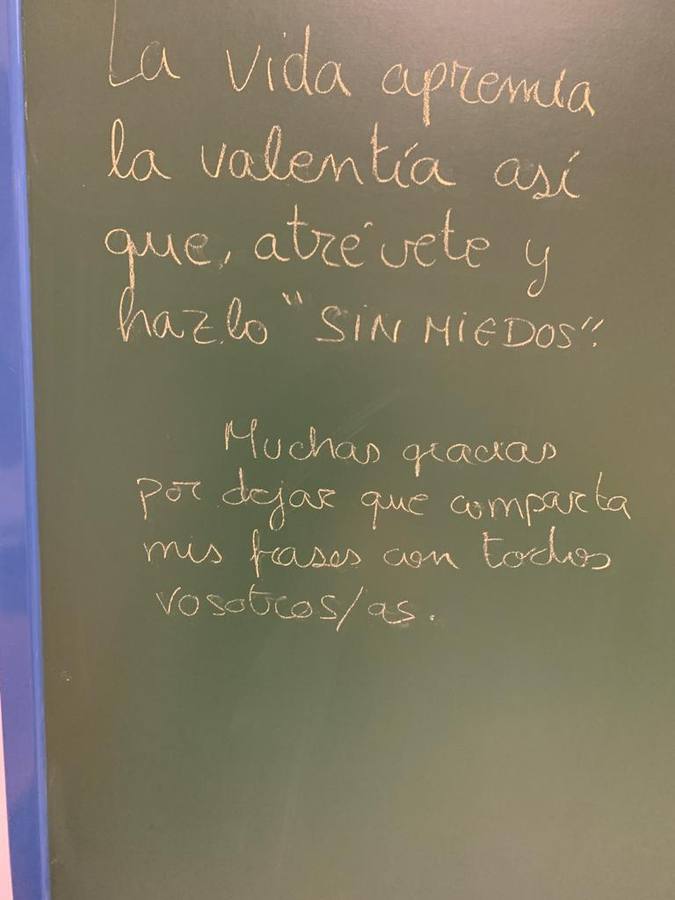 La vida apremia
la valentía así
que, atrévete y
hazlo "SIN MIEDOS".
Muchas gracias
por dejar que comparta
mis frases con todos
vosotros/as.